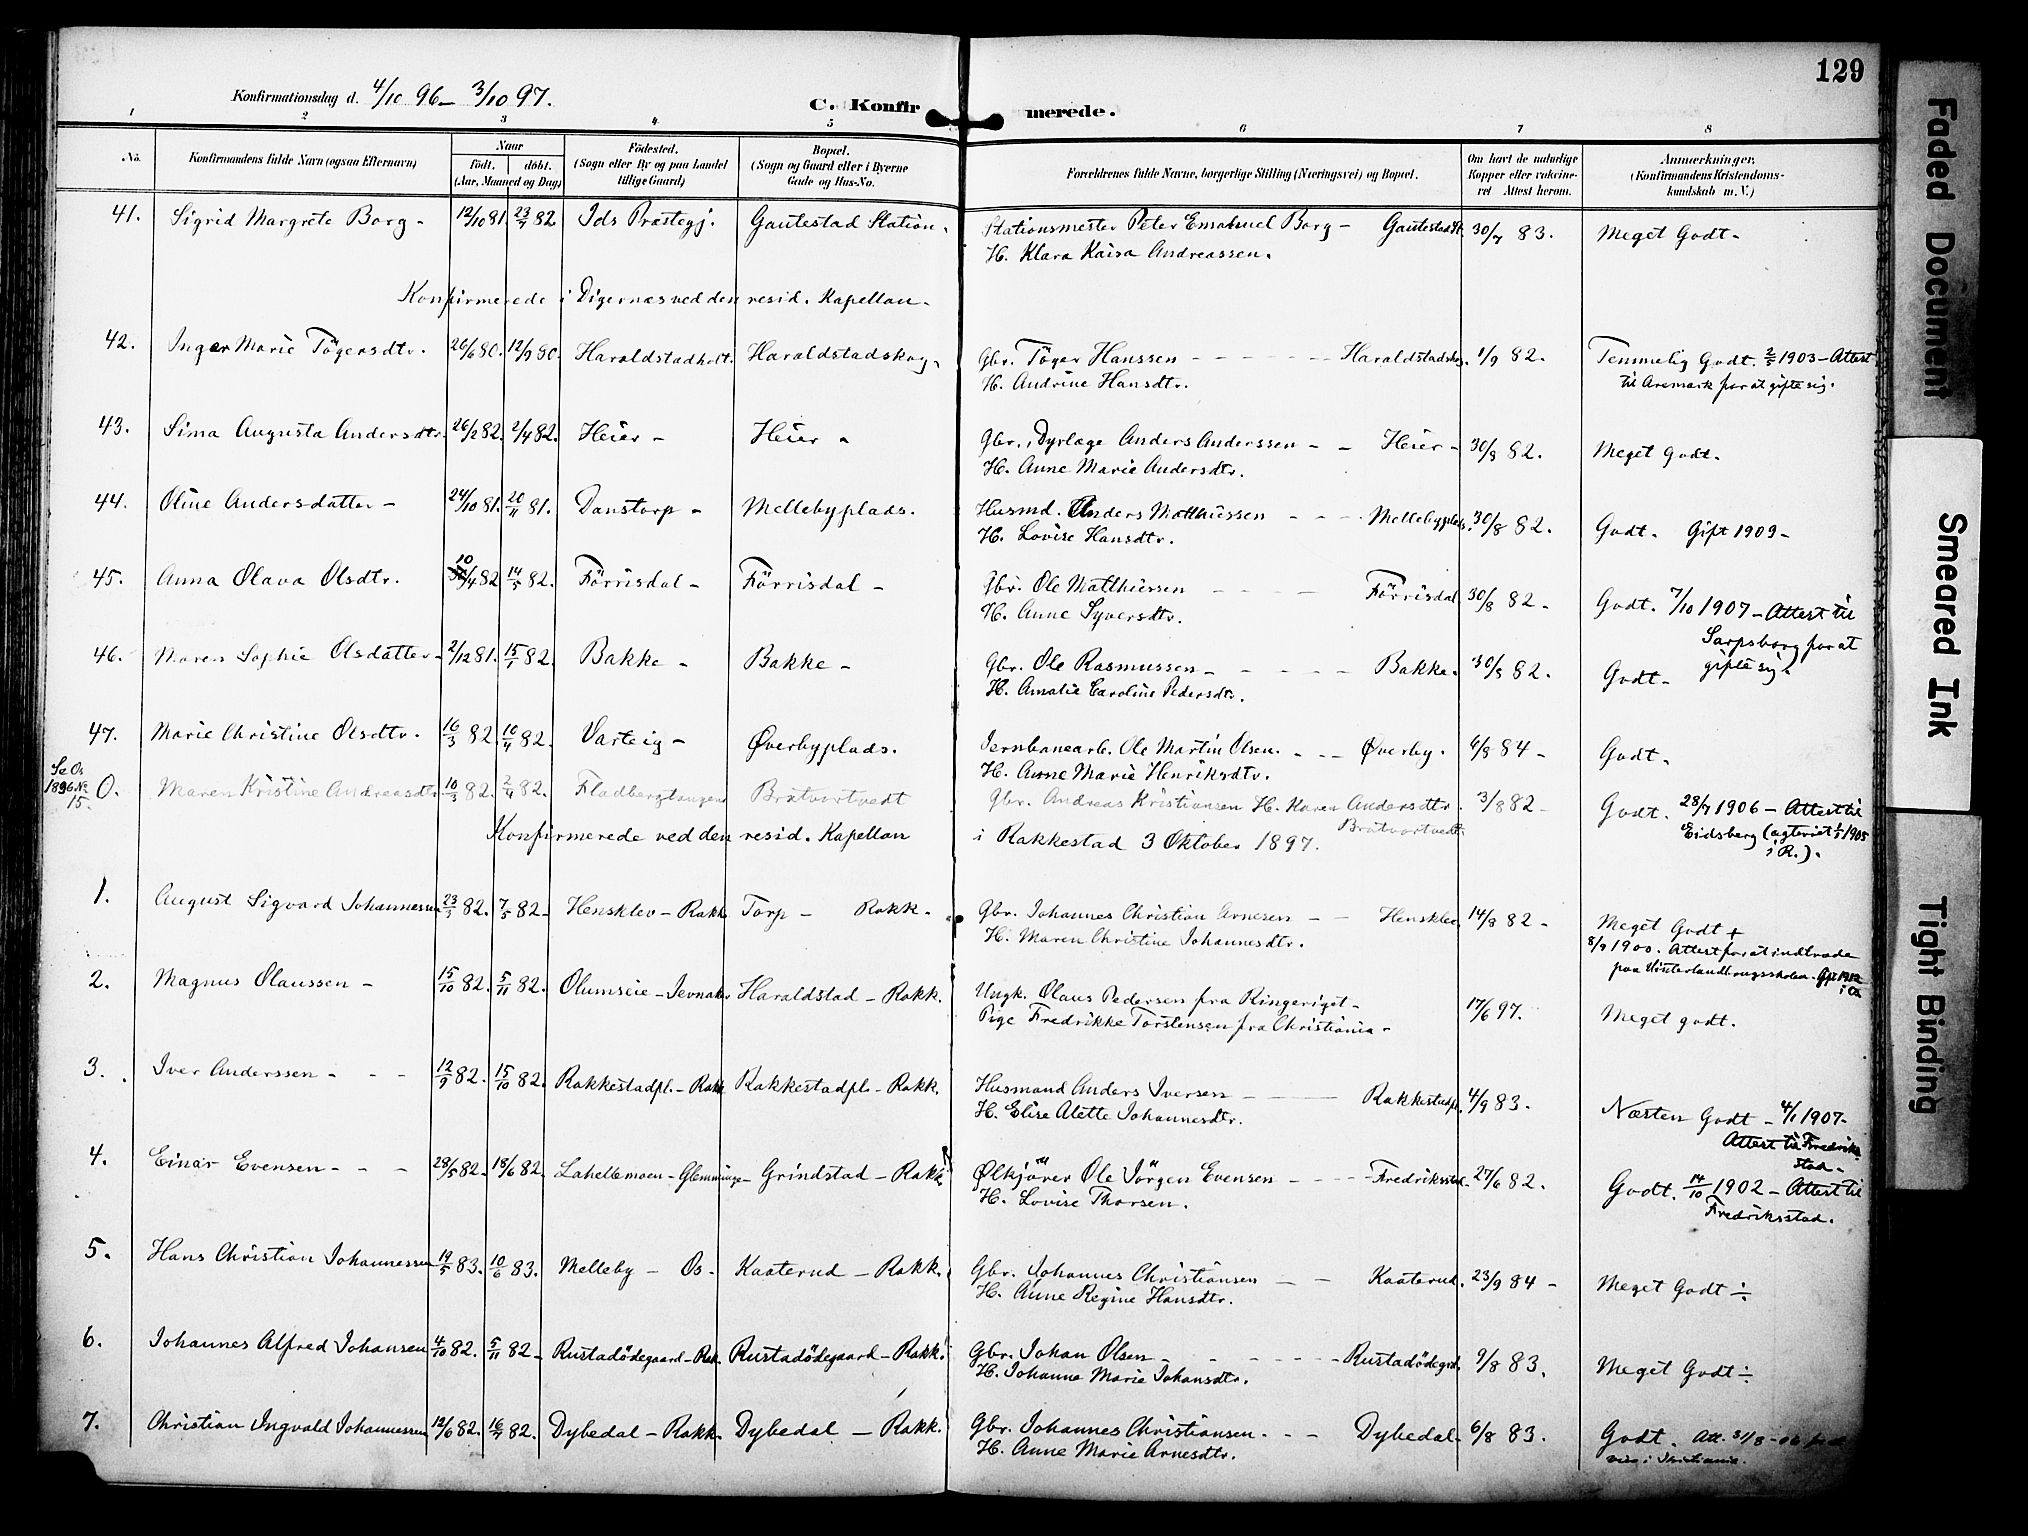 129
Konfirmationsdag d. 4/10 96 – 3/10 97.
C. Konfirmerede.
1 2 3 4 5 6 7 8
No. Konfirmandens fulde Navn (ogsaa Efternavn) Naar født. døbt. (Aar, Maaned og Dag) Fødested. (Sogn eller By og paa Landet tillige Gaard) Bopæl. (Sogn og Gaard eller i Byerne Gade og Hus-No. Forældrenes fulde Navne, borgerlige Stilling (Næringsvei) og Bopæl. Om havt de naturlige Kopper eller vaccineret Attest herom. Anmærkninger. (Konfirmandens Kristendomskundskab m. V.)
41. Sigrid Margrete Borg - 12/10 81. 82 Ids Præstegj. Gautestad Station. Stationsmester Peter Emanuel Borg - Gautestad St. 83. Meget Godt -
H. Klara Kaisa Andreassen.
Konfirmerede i Digernæs ved den resid. Kapellan.
42. Inger Marie Tögersdtr. 26/6 80. 12/9 80. Haraldstadholt. Haraldstadskog. Gbr. Töger Hanssen - - - Haraldstadskog. 1/9 82. Temmelig Godt. 1903 - Attest
H. Andrine Hansdtr. til Aremark for at gifte sig.
43. Sima Augusta Andersdtr. 26/2 82. 2/4 82. Heier - Heier - Gbr., Dyrlæge Anders Anderssen - - Heier - 30/8 82. Meget Godt.
H. Anne Marie Andersdtr.
44. Oline Andersdatter - 24/10 81. 20/11 81. Danstorp - Mellebyplads. Husmd. Anders Matthiessen - - - Mellebyplads. 30/8 82. Godt. Gift 1909 -
H. Lovise Hansdtr.
45. Anna Olava Olsdtr. 10/4 82 14/5 82. Förrisdal - Förrisdal - Gbr. Ole Matthiessen - - - Förrisdal. 30/8 82 - Godt. 7/10 1907 - Attest til
H. Anne Syversdtr. Sarpsborg for at
46. Maren Sophie Olsdatter - 2/12 81. 15/1 82. Bakke - Bakke - Gbr. Ole Rasmussen - - - Bakke. 30/8 82. Godt - gifte sig.
H. Amalie Caroline Pedersdtr.
47. Marie Christine Olsdtr. 16/3 82. 10/4 82. Varteig - Øverbyplads. Jernbanearb. Ole Martin Olsen. - - Øverby. 6/8 84 - Godt.
H. Anne Marie Henriksdtr.
Se Os
1896 No
15.
0. Maren Kristine Andreasdtr 10/3 82. 2/4 82. Fladbergtangen Gbr. Andreas Kristiansen H. Karen Andersdtr. 3/8 82 - Godt. 1906 - Attest til
Eidsberg 1905
i R.).
Konfirmerede ved den resid. Kapellan i Rakkestad 3 Oktober 1897.
1. August Sigvard Johannessen 82. 7/5 82 - Hensklev - Rakk. Torp - Rakk. Gbr. Johannes Christian Arnesen - - Hensklev. 14/8 82 - Meget Godt +
H. Maren Christine Johannesdtr. 1900. Attest for at indtræde
2. Magnus Olaussen - 15/10 82. 5/11 82. Olumseie - Jevnaker Haraldstad - Rakk. Ungk. Olaus Pedersen fra Ringeriget - 17/6 97. Meget godt.
Pige Fredrikke Torstensen fra Christiania -
3. Iver Anderssen - - - 12/9 82. 15/10 82. Rakkestadpl. - Rakk. Rakkestadpl - Rakk. Husmand Anders Iversen - - - Rakkestadpl. 4/9 83. Næsten Godt - 4/1 1907 -
H. Elise Alette Johannesdtr. Attest til Fredrik-
stad -
4. Einar Evensen - - - 28/5 82. 18/6 82. Lahellemoen - Glemminge - Grindstad - Rakk. Ølkjører Ole Jörgen Evensen - - - Fredriksstad. 27/6 82. Godt. 14/10 1902 - Attest til
H. Lovise Thorsen. Fredriksstad.
5. Hans Christian Johannessen 19/5 83. 10/6 83. Melleby - Os - Kaaterud - Rakk. Gbr. Johannes Christiansen - - Kaaterud. 23/9 84 - Meget Godt ÷
H. Anne Regine Hansdtr.
6. Johannes Alfred Johansen 4/10 82. 5/11 82 - Rustadödegaard - Rak. Rustadödegaard - Rakk. Gbr. Johan Olsen - - - Rustadödegrd. 9/8 83. Meget Godt ÷
H. Johanne Marie Johansdtr.
7. Christian Ingvald Johannessen 12/6 82. 16/7 82. Dybedal - Rakk. Dybedal - Rakk. Gbr. Johannes Christiansen. - - Dybedal. 6/8 83. Godt. Att. 31/8
H. Anne Marie Arnesdtr.
Faded Document
Smeared Ink
Tight Binding